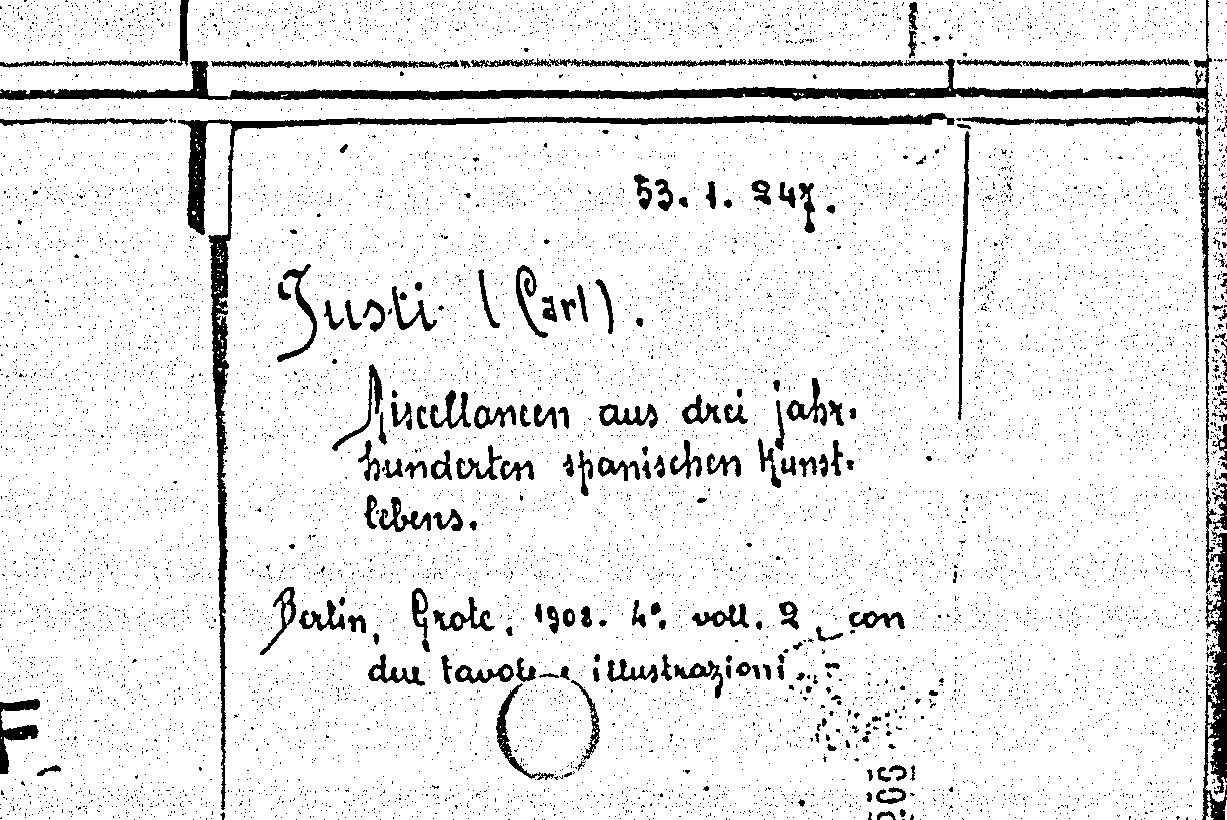 53. 1. 247.
Justi (Carl).
Miscellaneen aus drei jahr-
hunderten spanischen Kunst-
lebens.
Berlin, Grote, 1908. 4°. voll. 2, con
due tavole e illustrazioni.
F